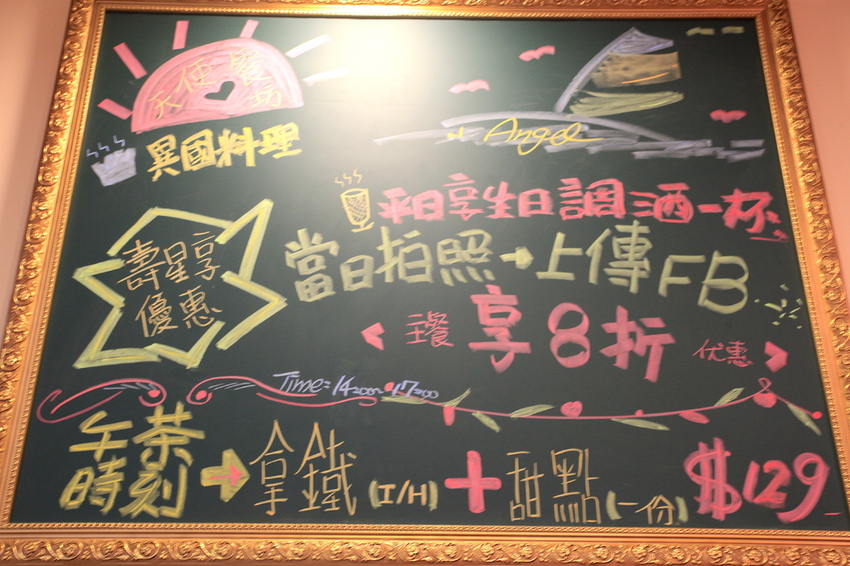 天使餐坊
異國料理
Angel
壽星享
優惠
來享生日調酒一杯
當日拍照→上傳FB
<主餐 享8折 优惠>
Time=14=00~17=00
午茶
時刻
→拿鐵(I/H)+甜點(一份)$129